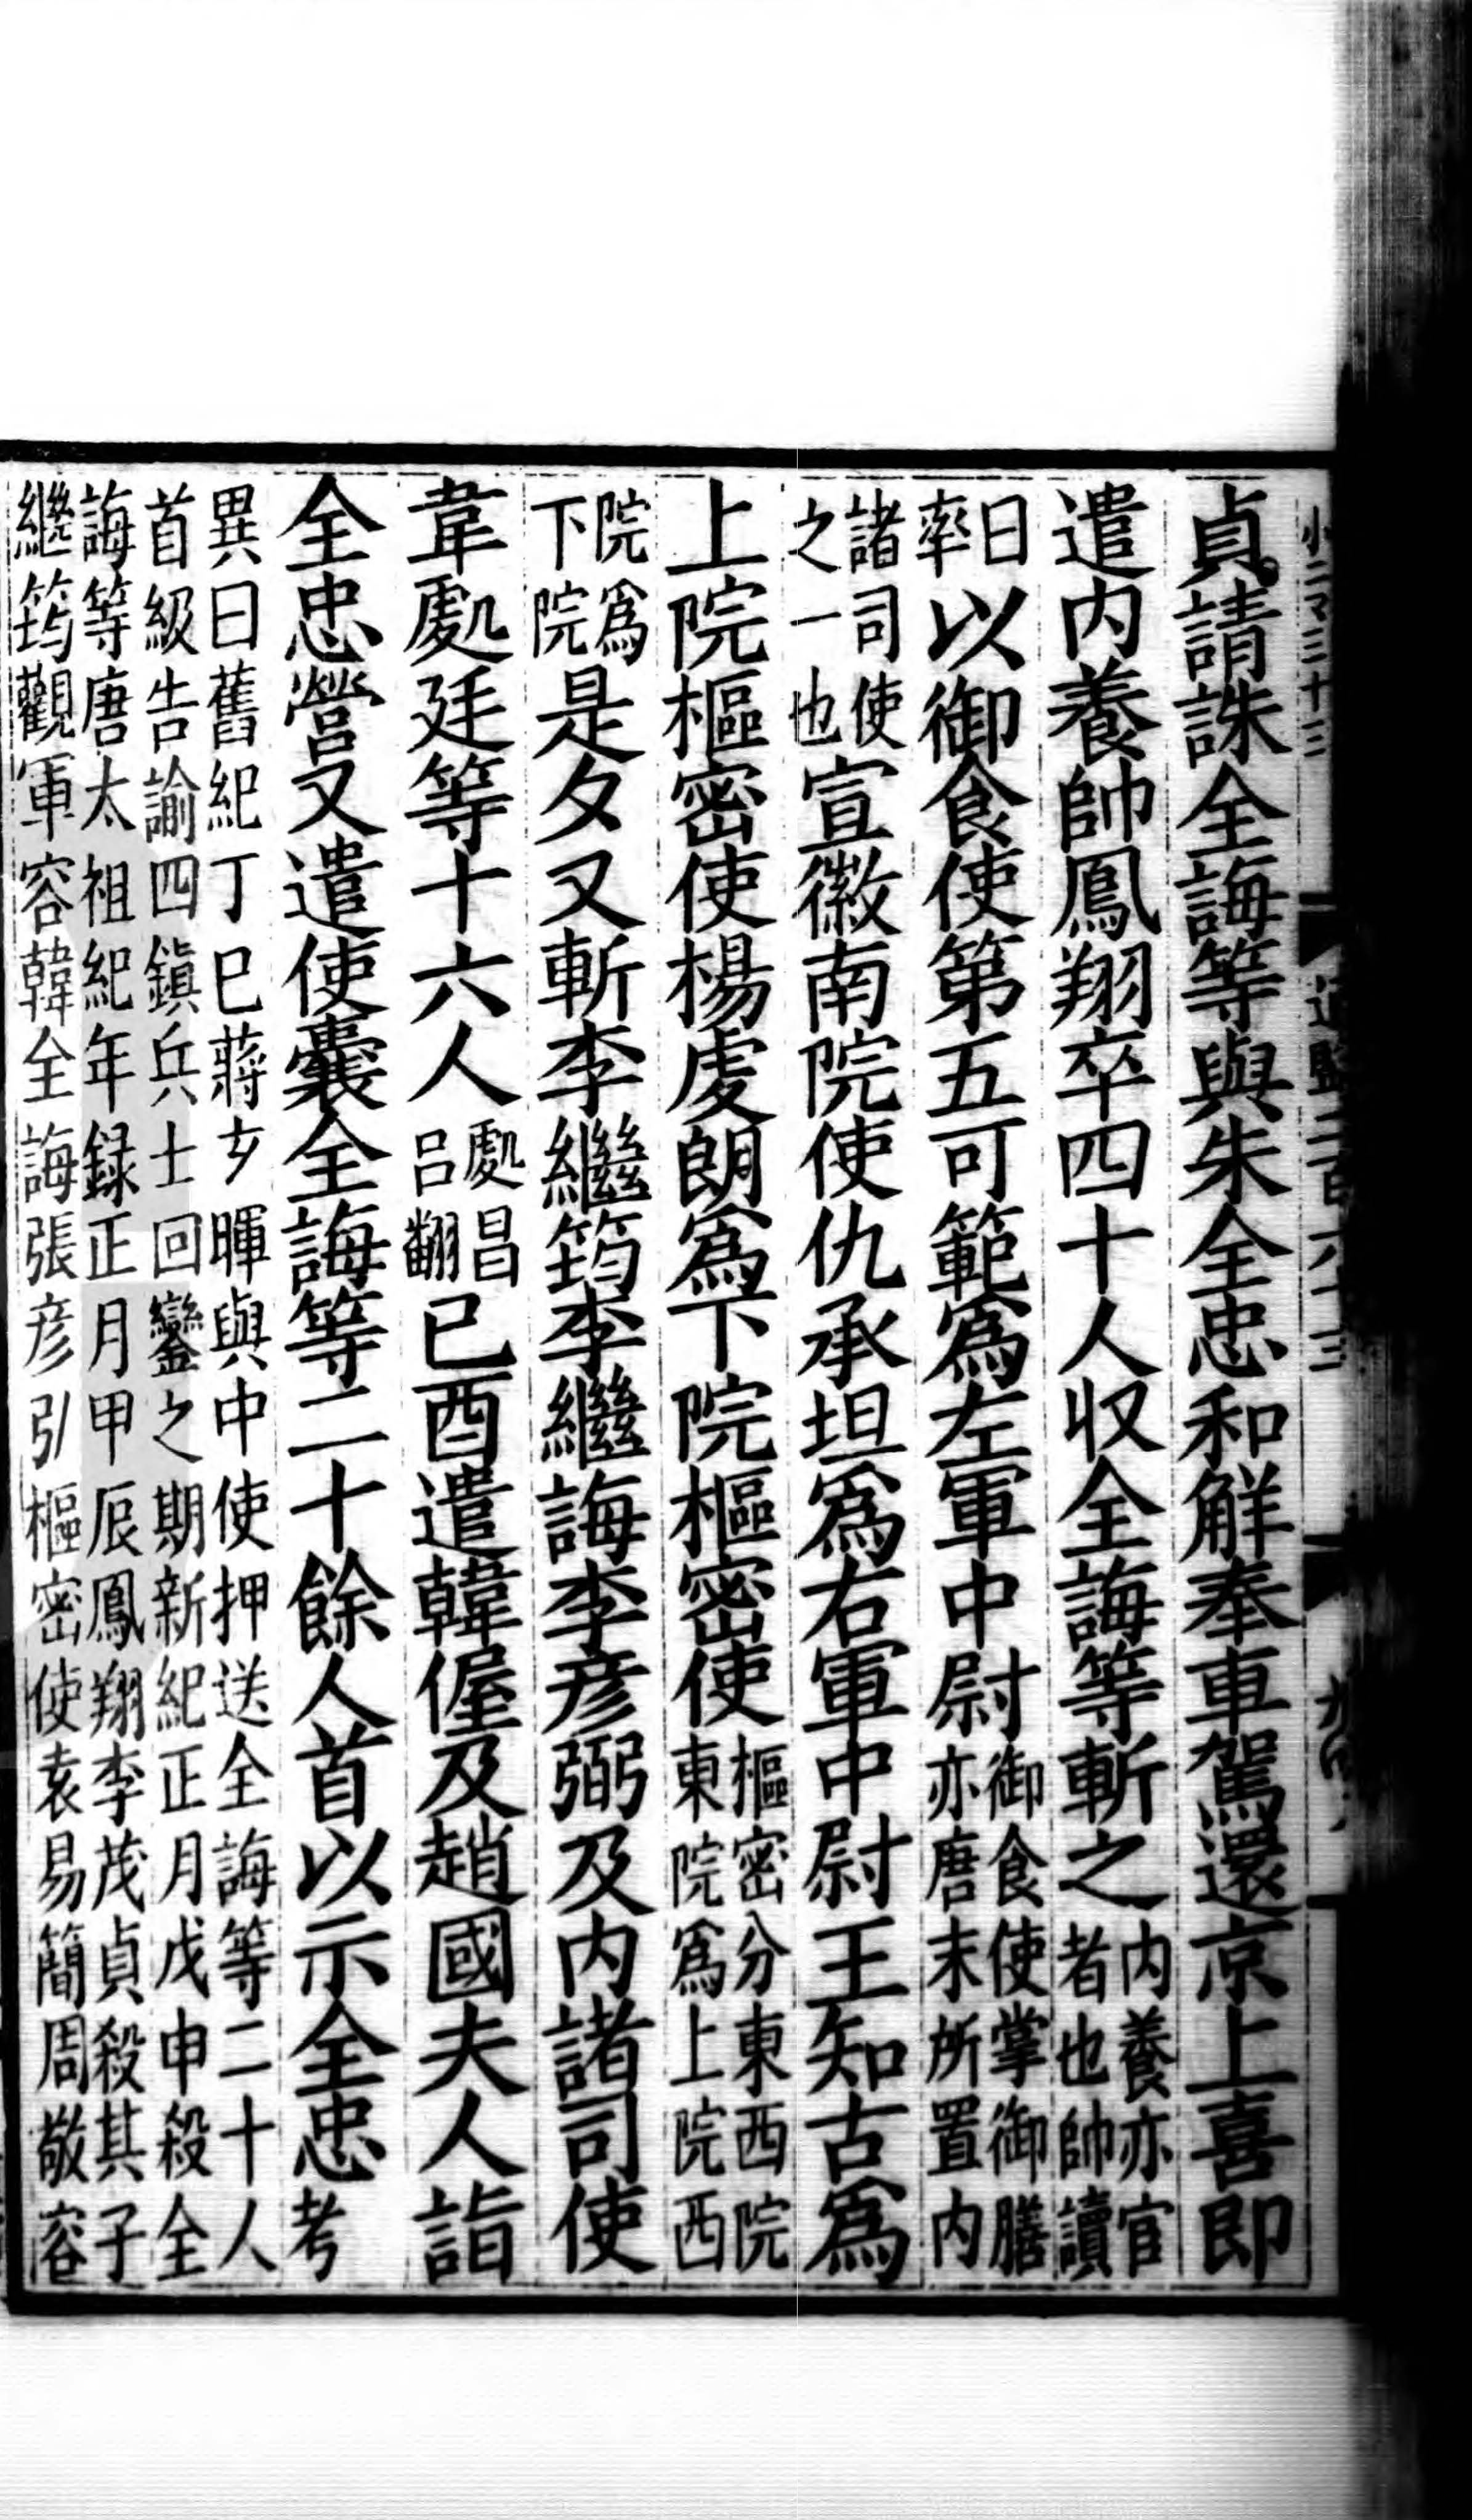 貞請誅全誨等與朱全忠和解奉車駕還京上喜即
遣内養帥鳳翔卒四十人收全誨等斬之内養亦官者也帥讀
曰率以御食使第五可範爲左軍中尉御食使掌御膳亦唐末所置内
諸司使之一也宣徽南院使仇承坦爲右軍中尉王知古爲
上院樞密使楊虔朗爲下院樞密使樞密分東西院東院爲上院西
院爲下院是夕又斬李繼筠李繼誨李彦弼及内諸司使
韋處廷等十六人處昌吕翻己酉遣韓偓及趙國夫人詣
全忠營又遣使囊全誨等二十餘人首以示全忠考
異曰舊紀丁巳蔣玄暉與中使押送全誨等二十人
首級告諭四鎮兵士回鑾之期新紀正月戊申殺全
誨等唐太祖紀年録正月甲辰鳳翔李茂貞殺其子
繼筠觀軍容韓全誨張彦引樞密使袁易簡周敬容
小二マ三十三